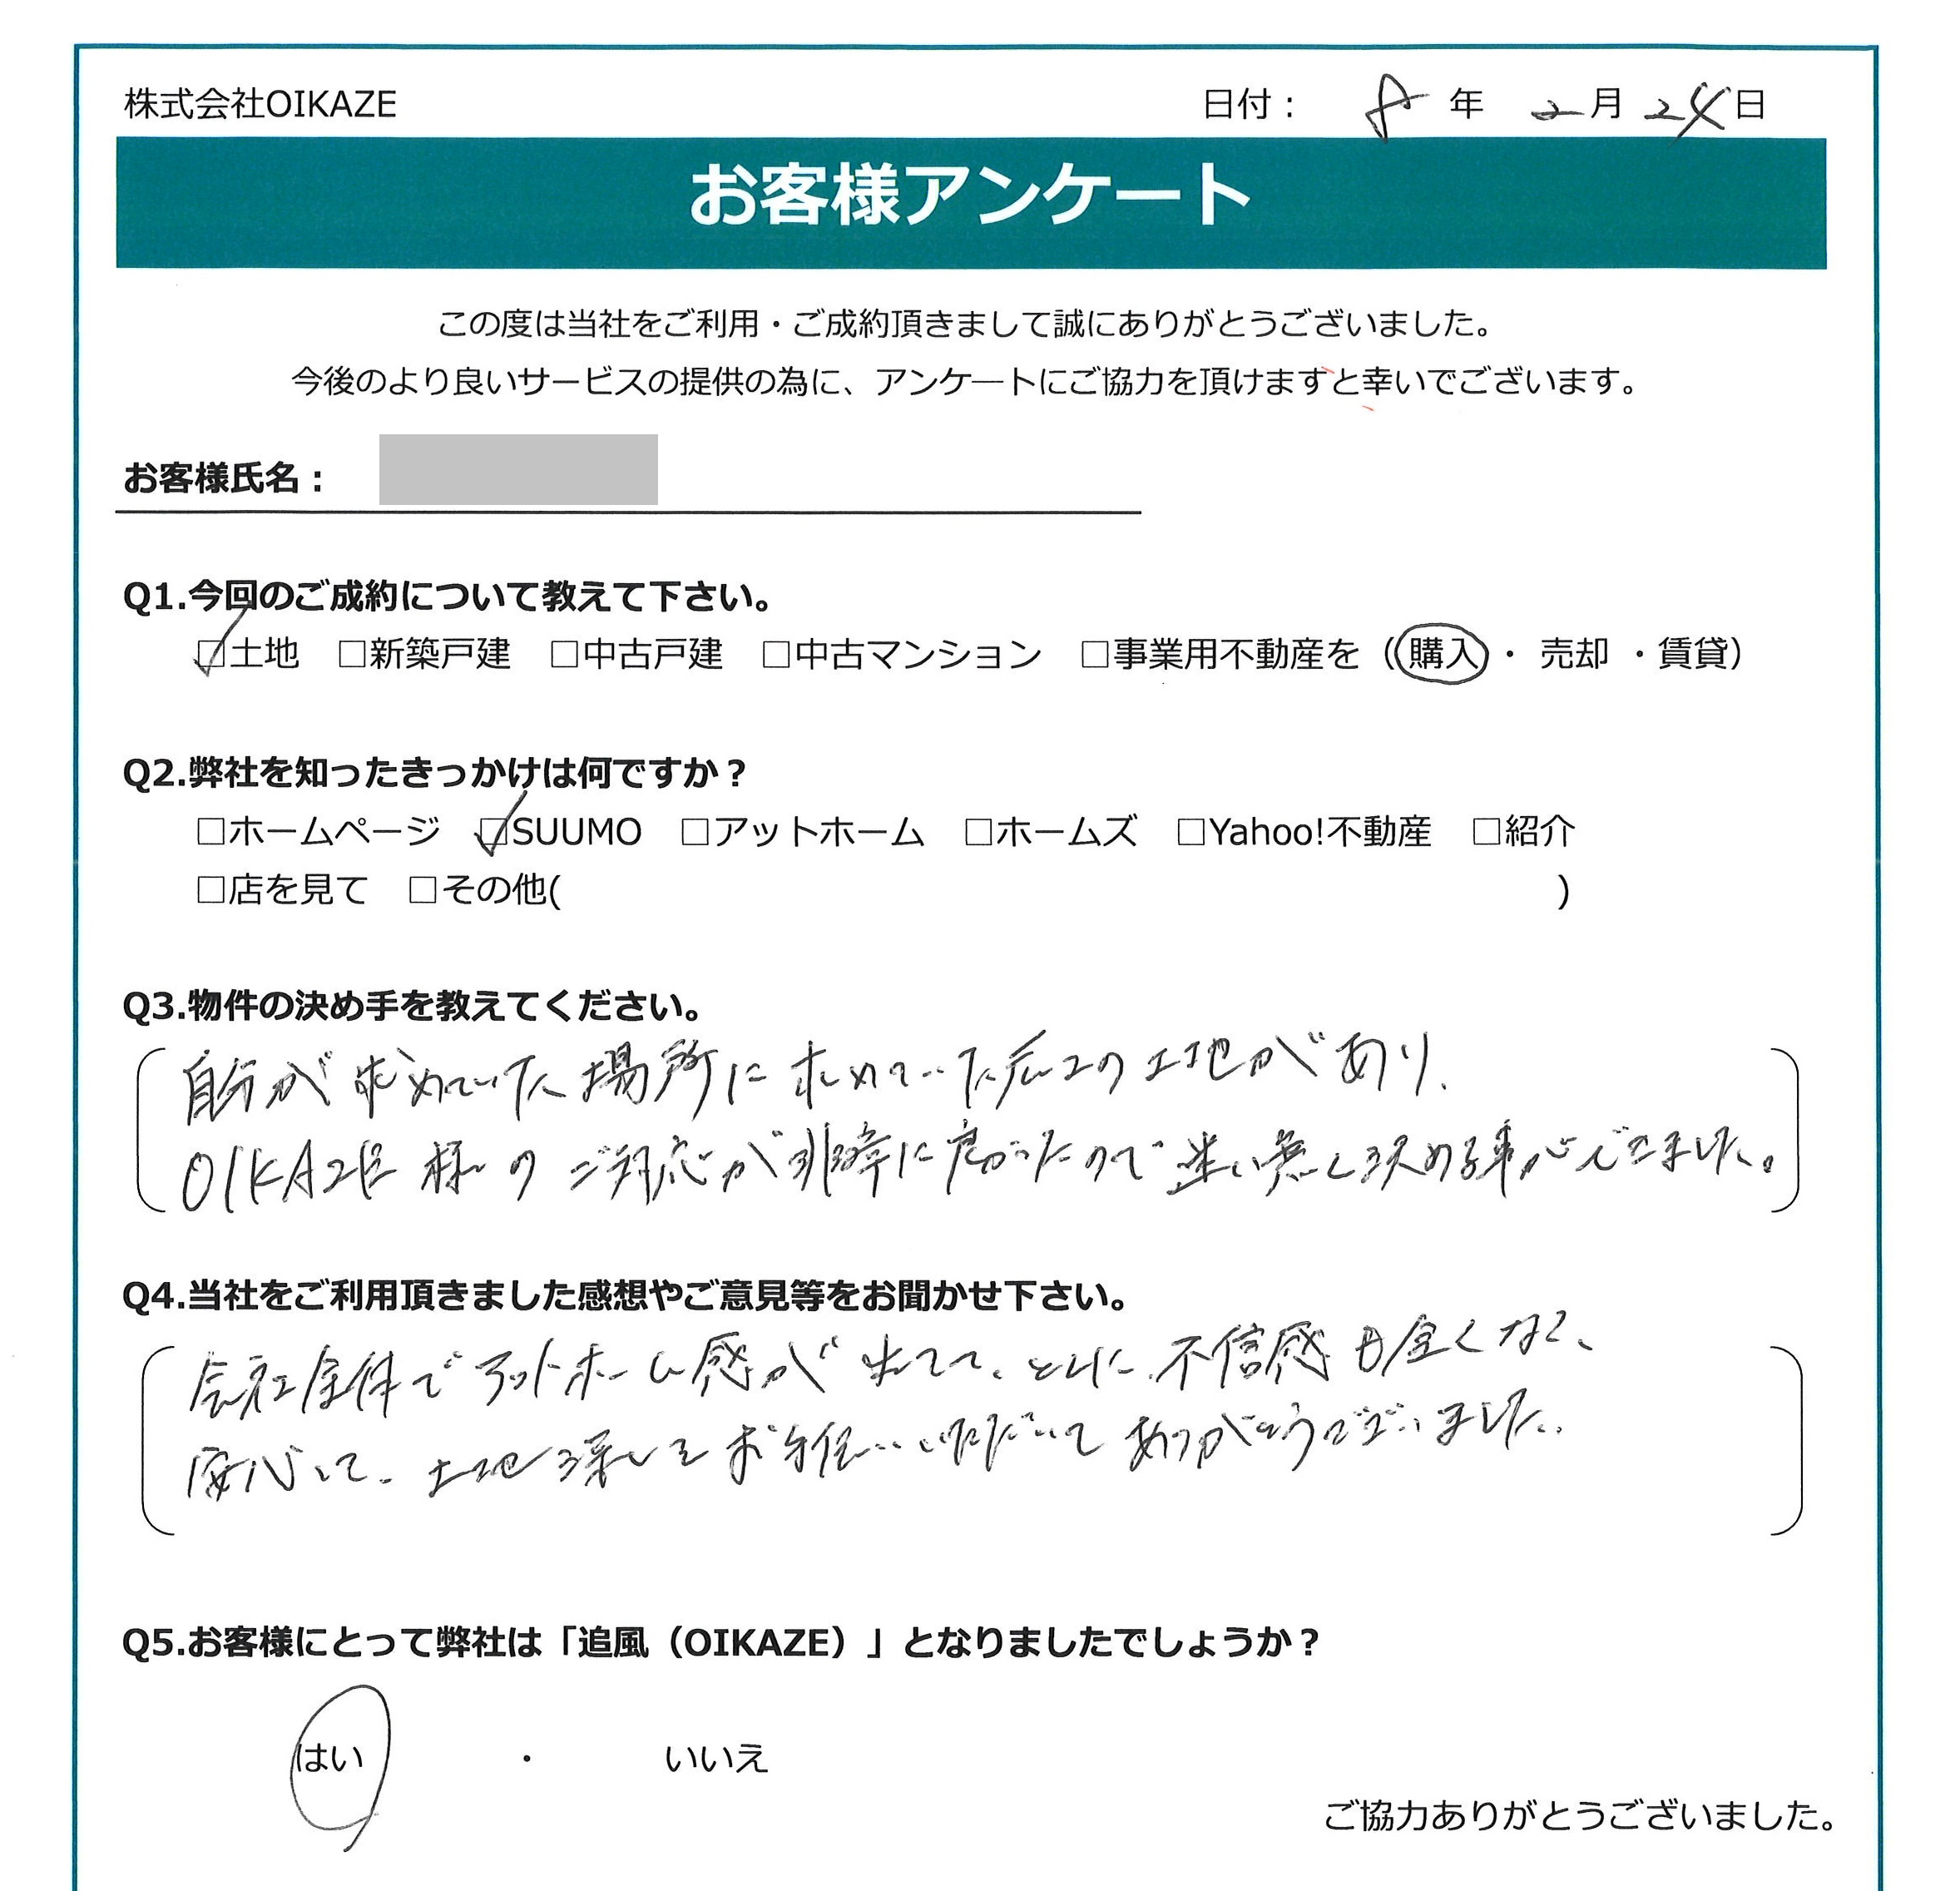 株式会社OIKAZE 日付： 8 年 2 月 24 日
お客様アンケート
この度は当社をご利用・ご成約頂きまして誠にありがとうございました。
今後のより良いサービスの提供の為に、アンケートにご協力を頂けますと幸いでございます。
お客様氏名：
Q1.今回のご成約について教えて下さい。
☑土地 □新築戸建 □中古戸建 □中古マンション □事業用不動産を（購入・ 売却 ・賃貸）
Q2.弊社を知ったきっかけは何ですか？
□ホームページ ☑SUUMO □アットホーム □ホームズ □Yahoo!不動産 □紹介
□店を見て □その他( )
Q3.物件の決め手を教えてください。
自分が求めていた場所に求めていた広さの土地があり、
OIKAZE様のご対応が非常に良かったので迷い無く決める事ができました。
Q4.当社をご利用頂きました感想やご意見等をお聞かせ下さい。
会社全体でアットホーム感が出てて、とくに不信感も全くなく、
安心して、土地探しをお任せいただいてありがとうございました。
Q5.お客様にとって弊社は「追風（OIKAZE）」となりましたでしょうか？
はい ・ いいえ
ご協力ありがとうございました。